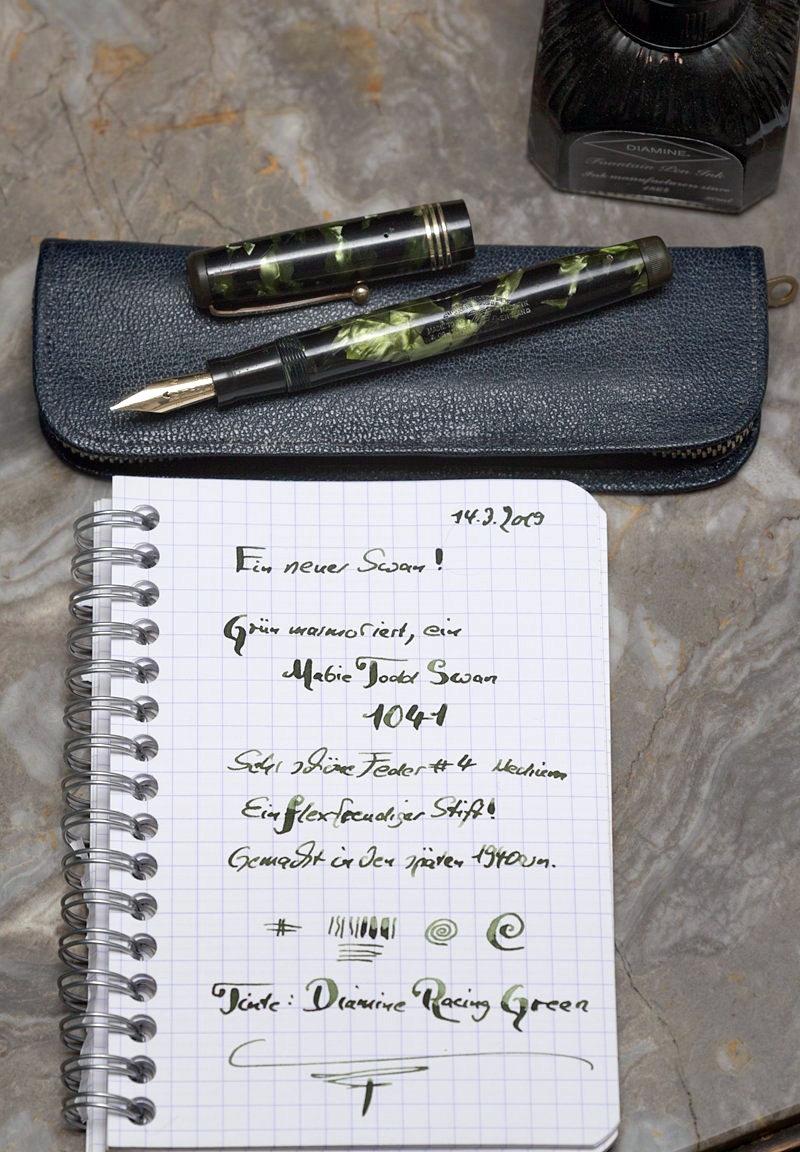 DIAMINE
Fountain Pen Ink
Ink manufacturers since
1864
14.3.2019
Ein neuer Swan!
Grün marmoriert, ein
Mabie Todd Swan
1041
Sehr schöne Feder #4 Medium
Ein flexfreudiger Stift!
Gemacht in den späten 1940ern.
Tinte: Diamine Racing Green